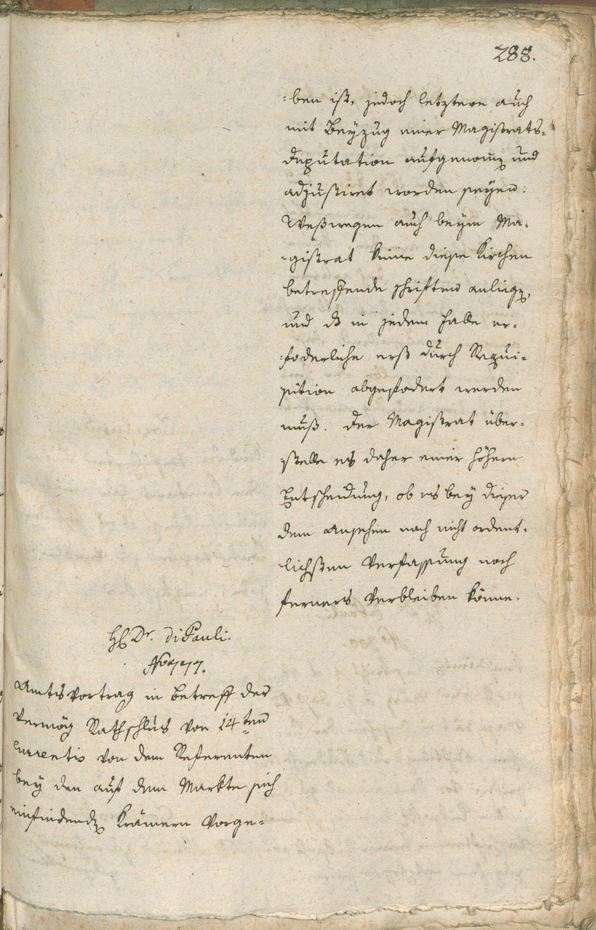 288.
:ben ist, jedoch letztere auch
mit Beyzug einer Magistrats-
deputation aufgenomen und
adjustiret worden seyen:
Weßwegen auch beym Ma-
-gistrat keine diese Kirchen
betrefende schriften anliege,
und ds in jedem falle er-
:foderliche erst durch Requi-
sition abgefodert werden
muß. Der Magistrat über-
stelle es daher einer höhern
Entscheidung, ob es bey dieser
dem Ansehen nach nicht ordent-
lichsten Verfassung noch
ferners verbleiben könne.
H. Dr. di Pauli.
No 777.
Amtsvortrag in betreff der
vermög Rathschlus von 14ten
currentis von dem Referenten
bey den auf dem Markte sich
einfindenden Krämern vorge-